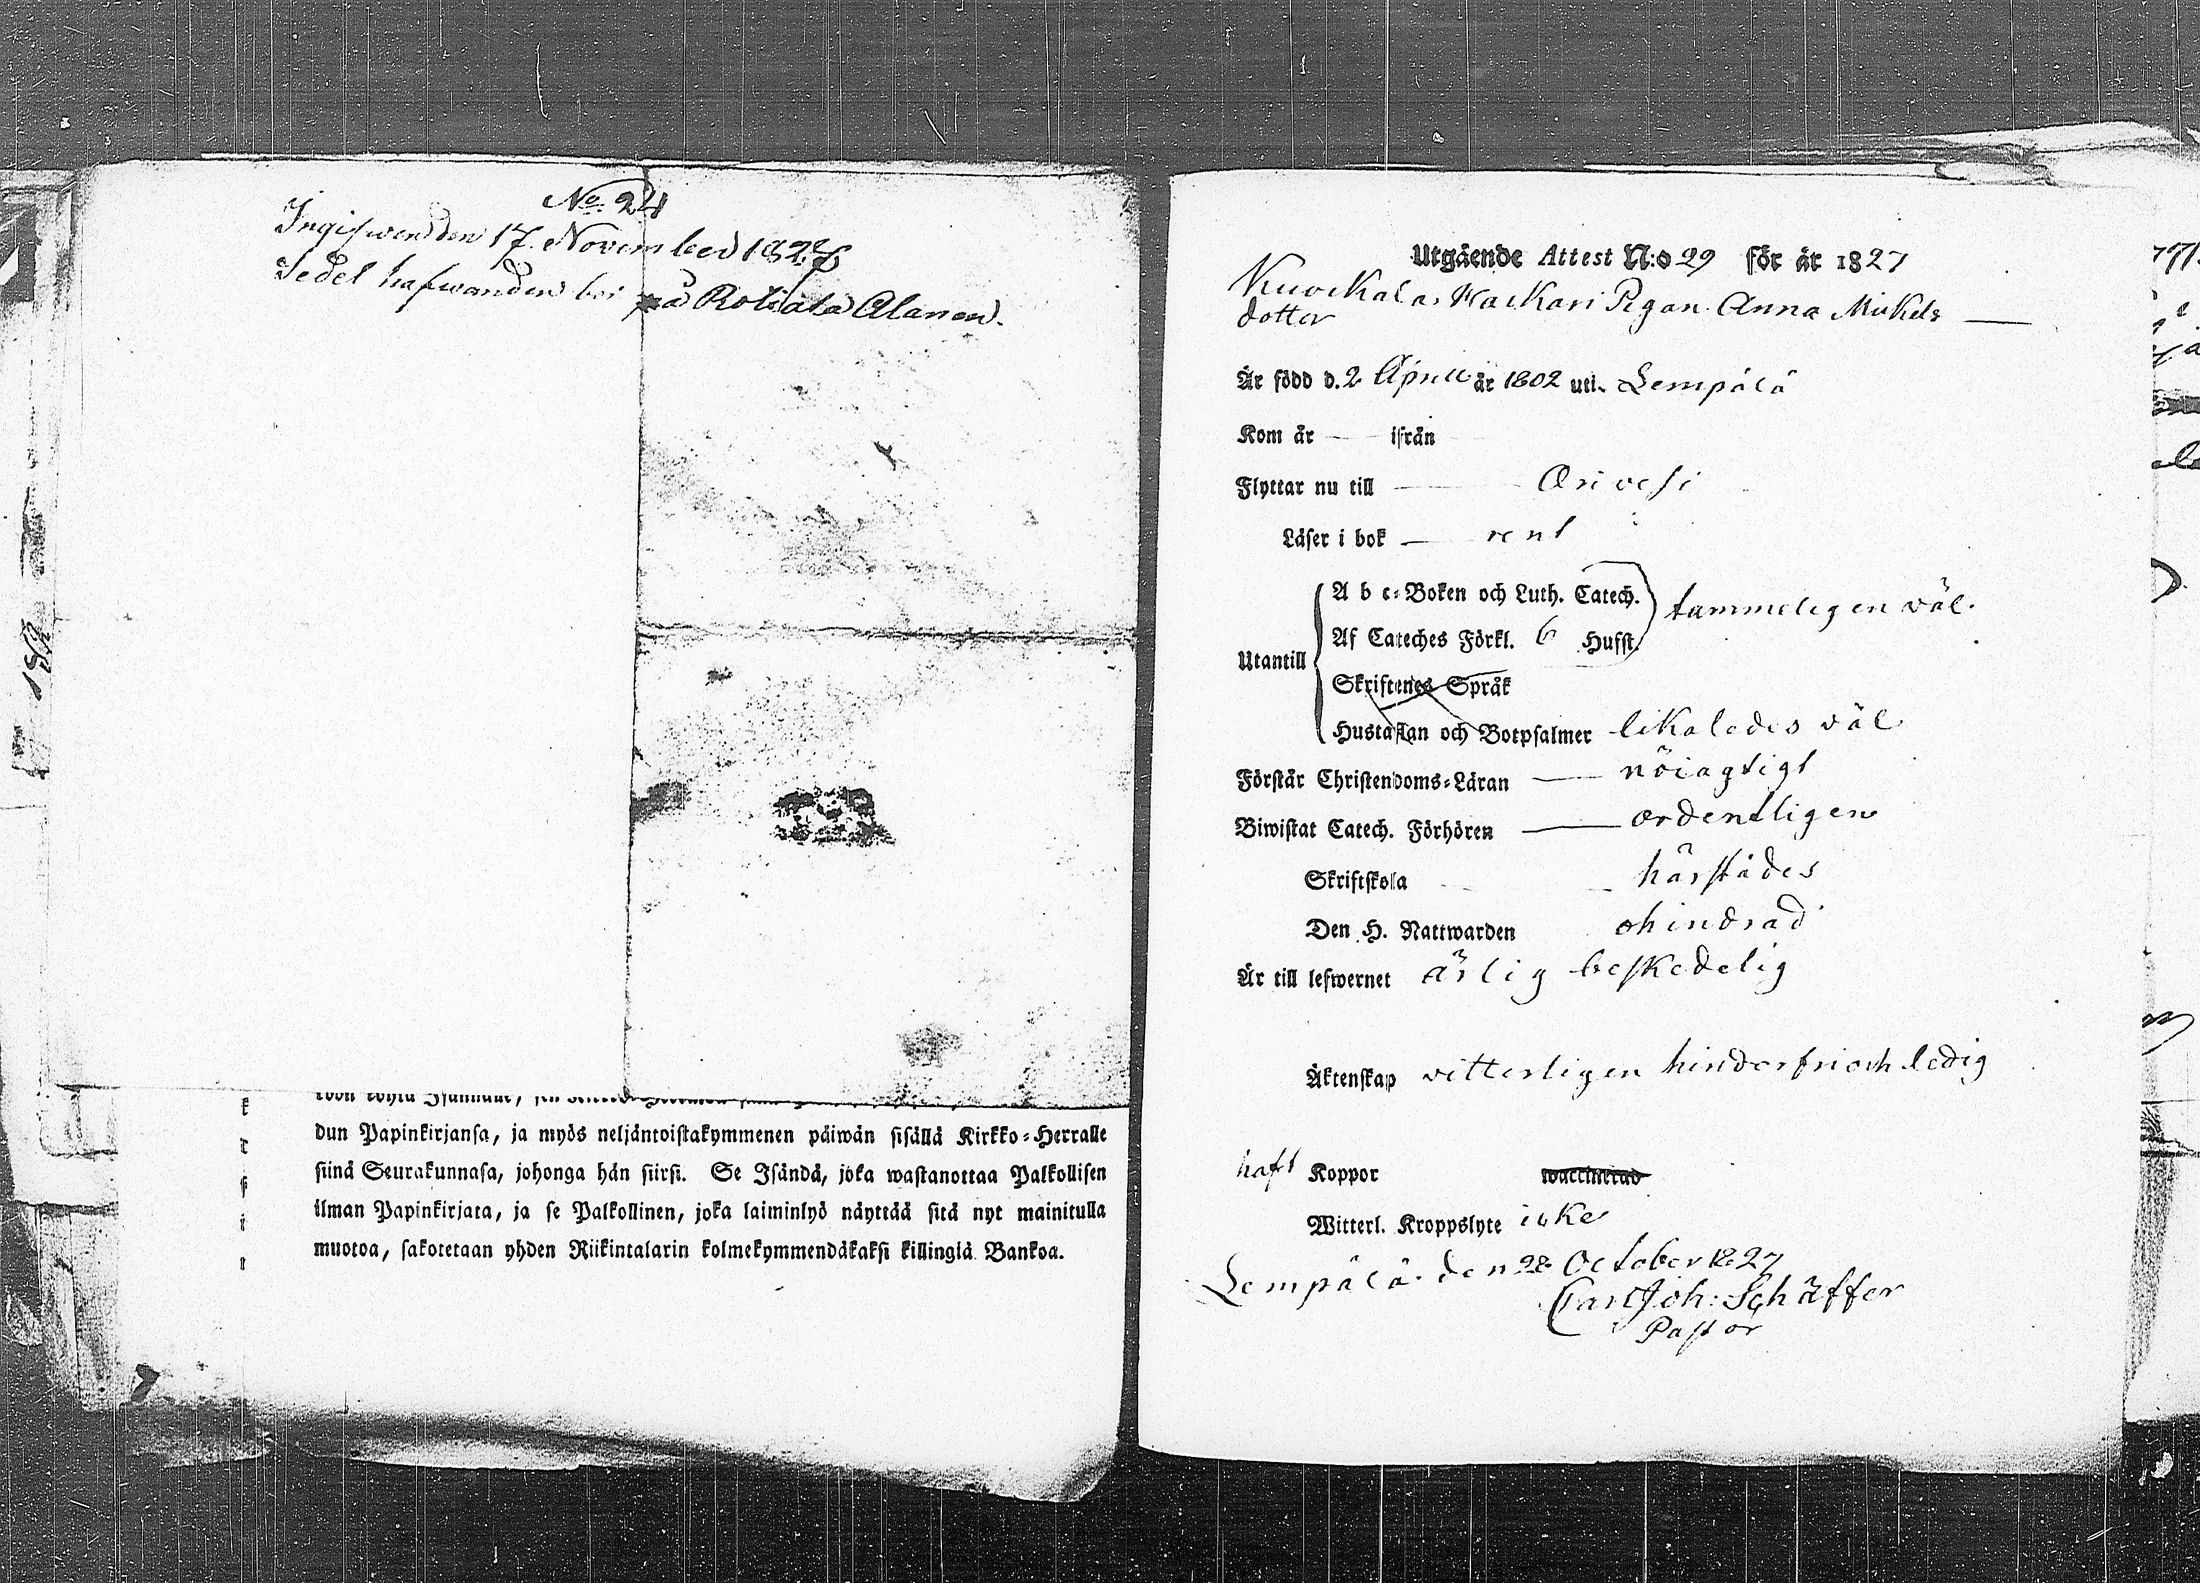 No. 24
Ingifwen den 17 November 1827
Sedel hafwanden bor på Alanen.
k
r
s
i
t
dun Papinkirjansa, ja myös neljäntoistakymmenen päiwän sisällä Kirkko-Herralle
siinä Seurakunnasa, johonga hän siirsi. Se Isändä, joka wastanottaa Palkollisen
ilman Papinkirjata, ja se Palkollinen, joka laiminlyö näyttää sitä nyt mainitulla
muotoa, sakotetaan yhden Riikintalarin kolmekymmendäkaksi killingiä Bankoa.
Utgående Attest N:o 29 för år 1827
Kuockala Kackari Pigan Anna Mickels
dotter
Är född d. 2 April år 1802 uti Lempälä
Kom år — ifrån
Flyttar nu till — Orivesi
Läser i bok — rent
Utantill
A b c-Boken och Luth. Catech.
tammeligen väl.
Af Cateches Förkl. 6 Hufst.
Skriftenes Språk
Hustaflan och Botpsalmer likaledes väl
Förstår Christendoms-Läran — nöiagtigt
Biwistat Catech. Förhören — ordentligen
Skriftskola härstädes
Den H. Nattwarden ohindrad
Är till lefwernet ärlig beskedelig
Äktenskap vitterligen hinderfri och ledig
haft Koppor waccinerad
Witterl. Kroppslyte icke
Lempälä den 28 October 1827
Carl Joh: Schäffer
Pastor